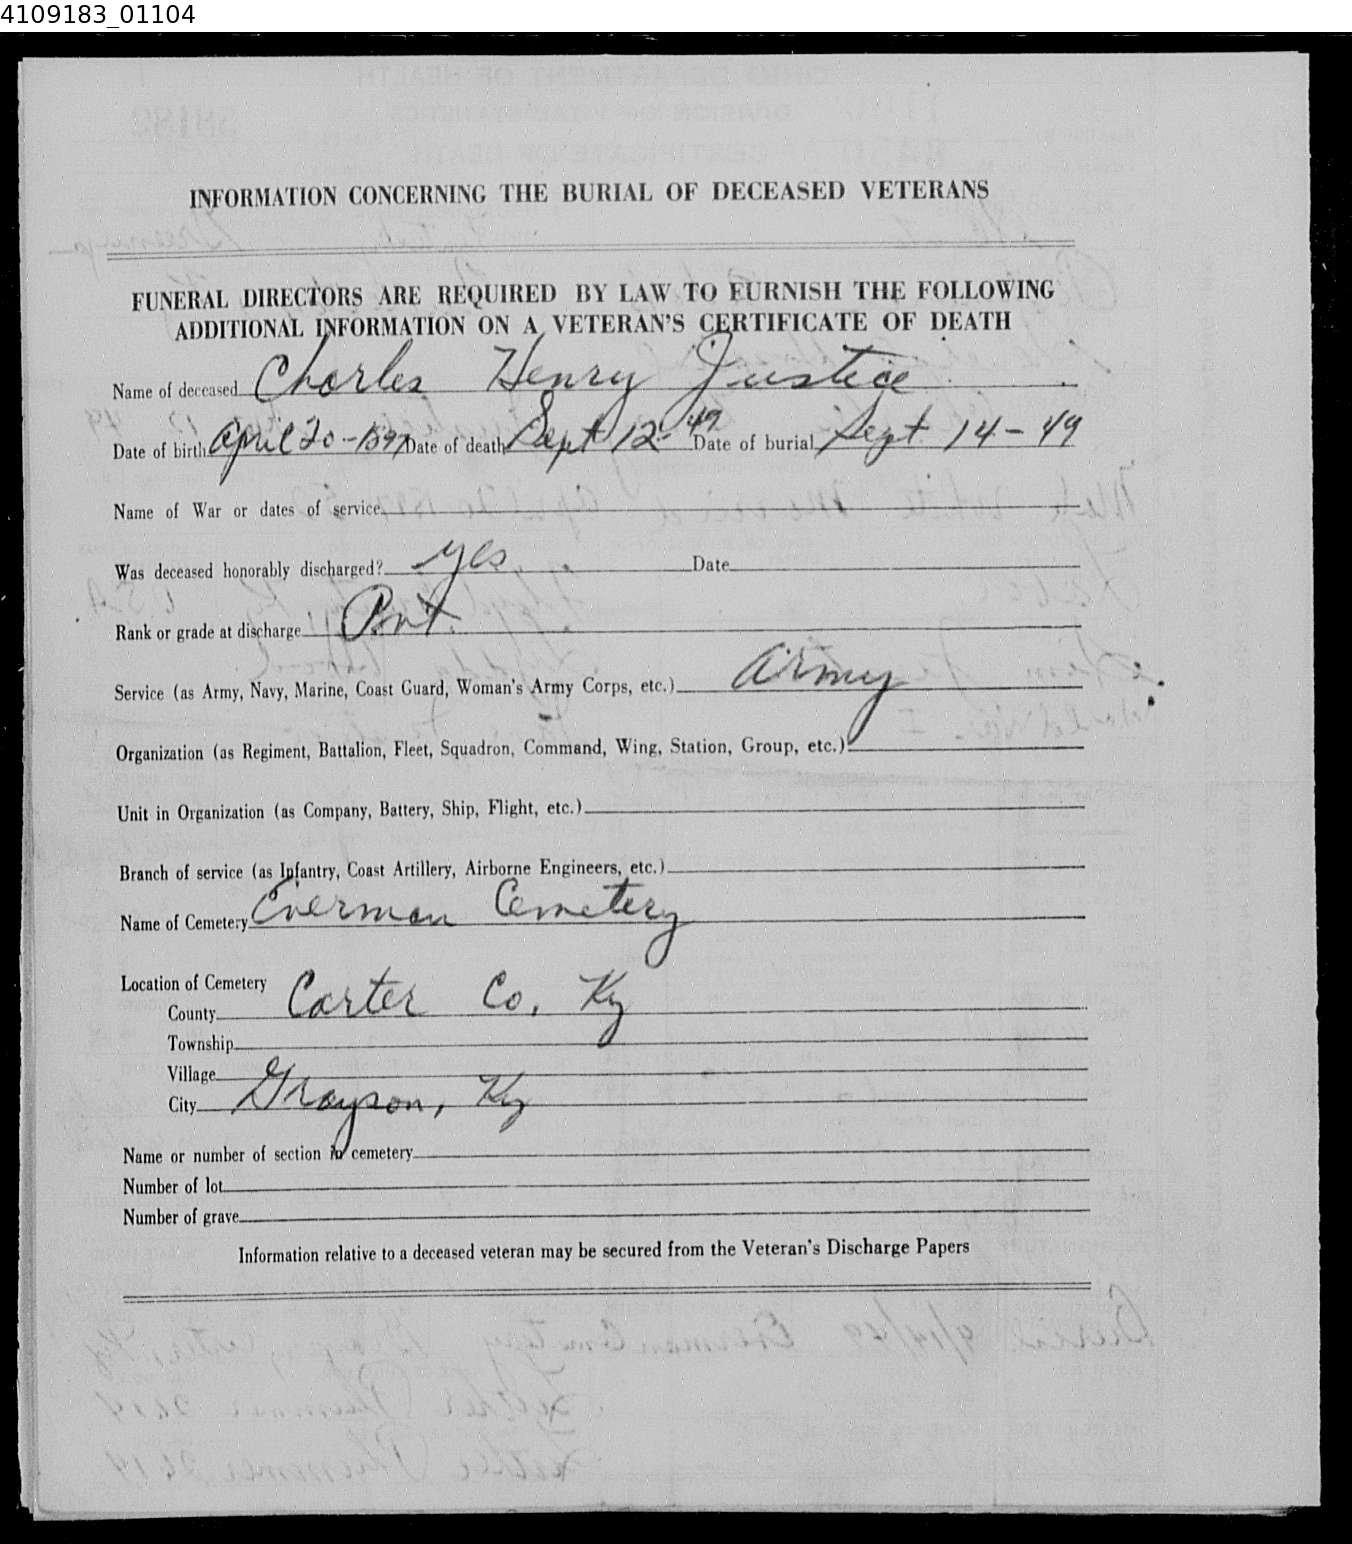 4109183_01104
INFORMATION CONCERNING THE BURIAL OF DECEASED VETERANS
FUNERAL DIRECTORS ARE REQUIRED BY LAW TO FURNISH THE FOLLOWING
ADDITIONAL INFORMATION ON A VETERAN'S CERTIFICATE OF DEATH
Name of deceased Charles Henry Justice
Date of birth April 20-1897 Date of death Sept 12-49 Date of burial Sept 14-49
Name of War or dates of service
Was deceased honorably discharged? yes Date
Rank or grade at discharge Pvt.
Service (as Army, Navy, Marine, Coast Guard, Woman's Army Corps, etc.) Army
Organization (as Regiment, Battalion, Fleet, Squadron, Command, Wing, Station, Group, etc.)
Unit in Organization (as Company, Battery, Ship, Flight, etc.)
Branch of service (as Infantry, Coast Artillery, Airborne Engineers, etc.)
Name of Cemetery Everman Cemetery
Location of Cemetery
County Carter Co, Ky
Township
Village
City Grayson, Ky
Name or number of section in cemetery
Number of lot
Number of grave
Information relative to a deceased veteran may be secured from the Veteran's Discharge Papers